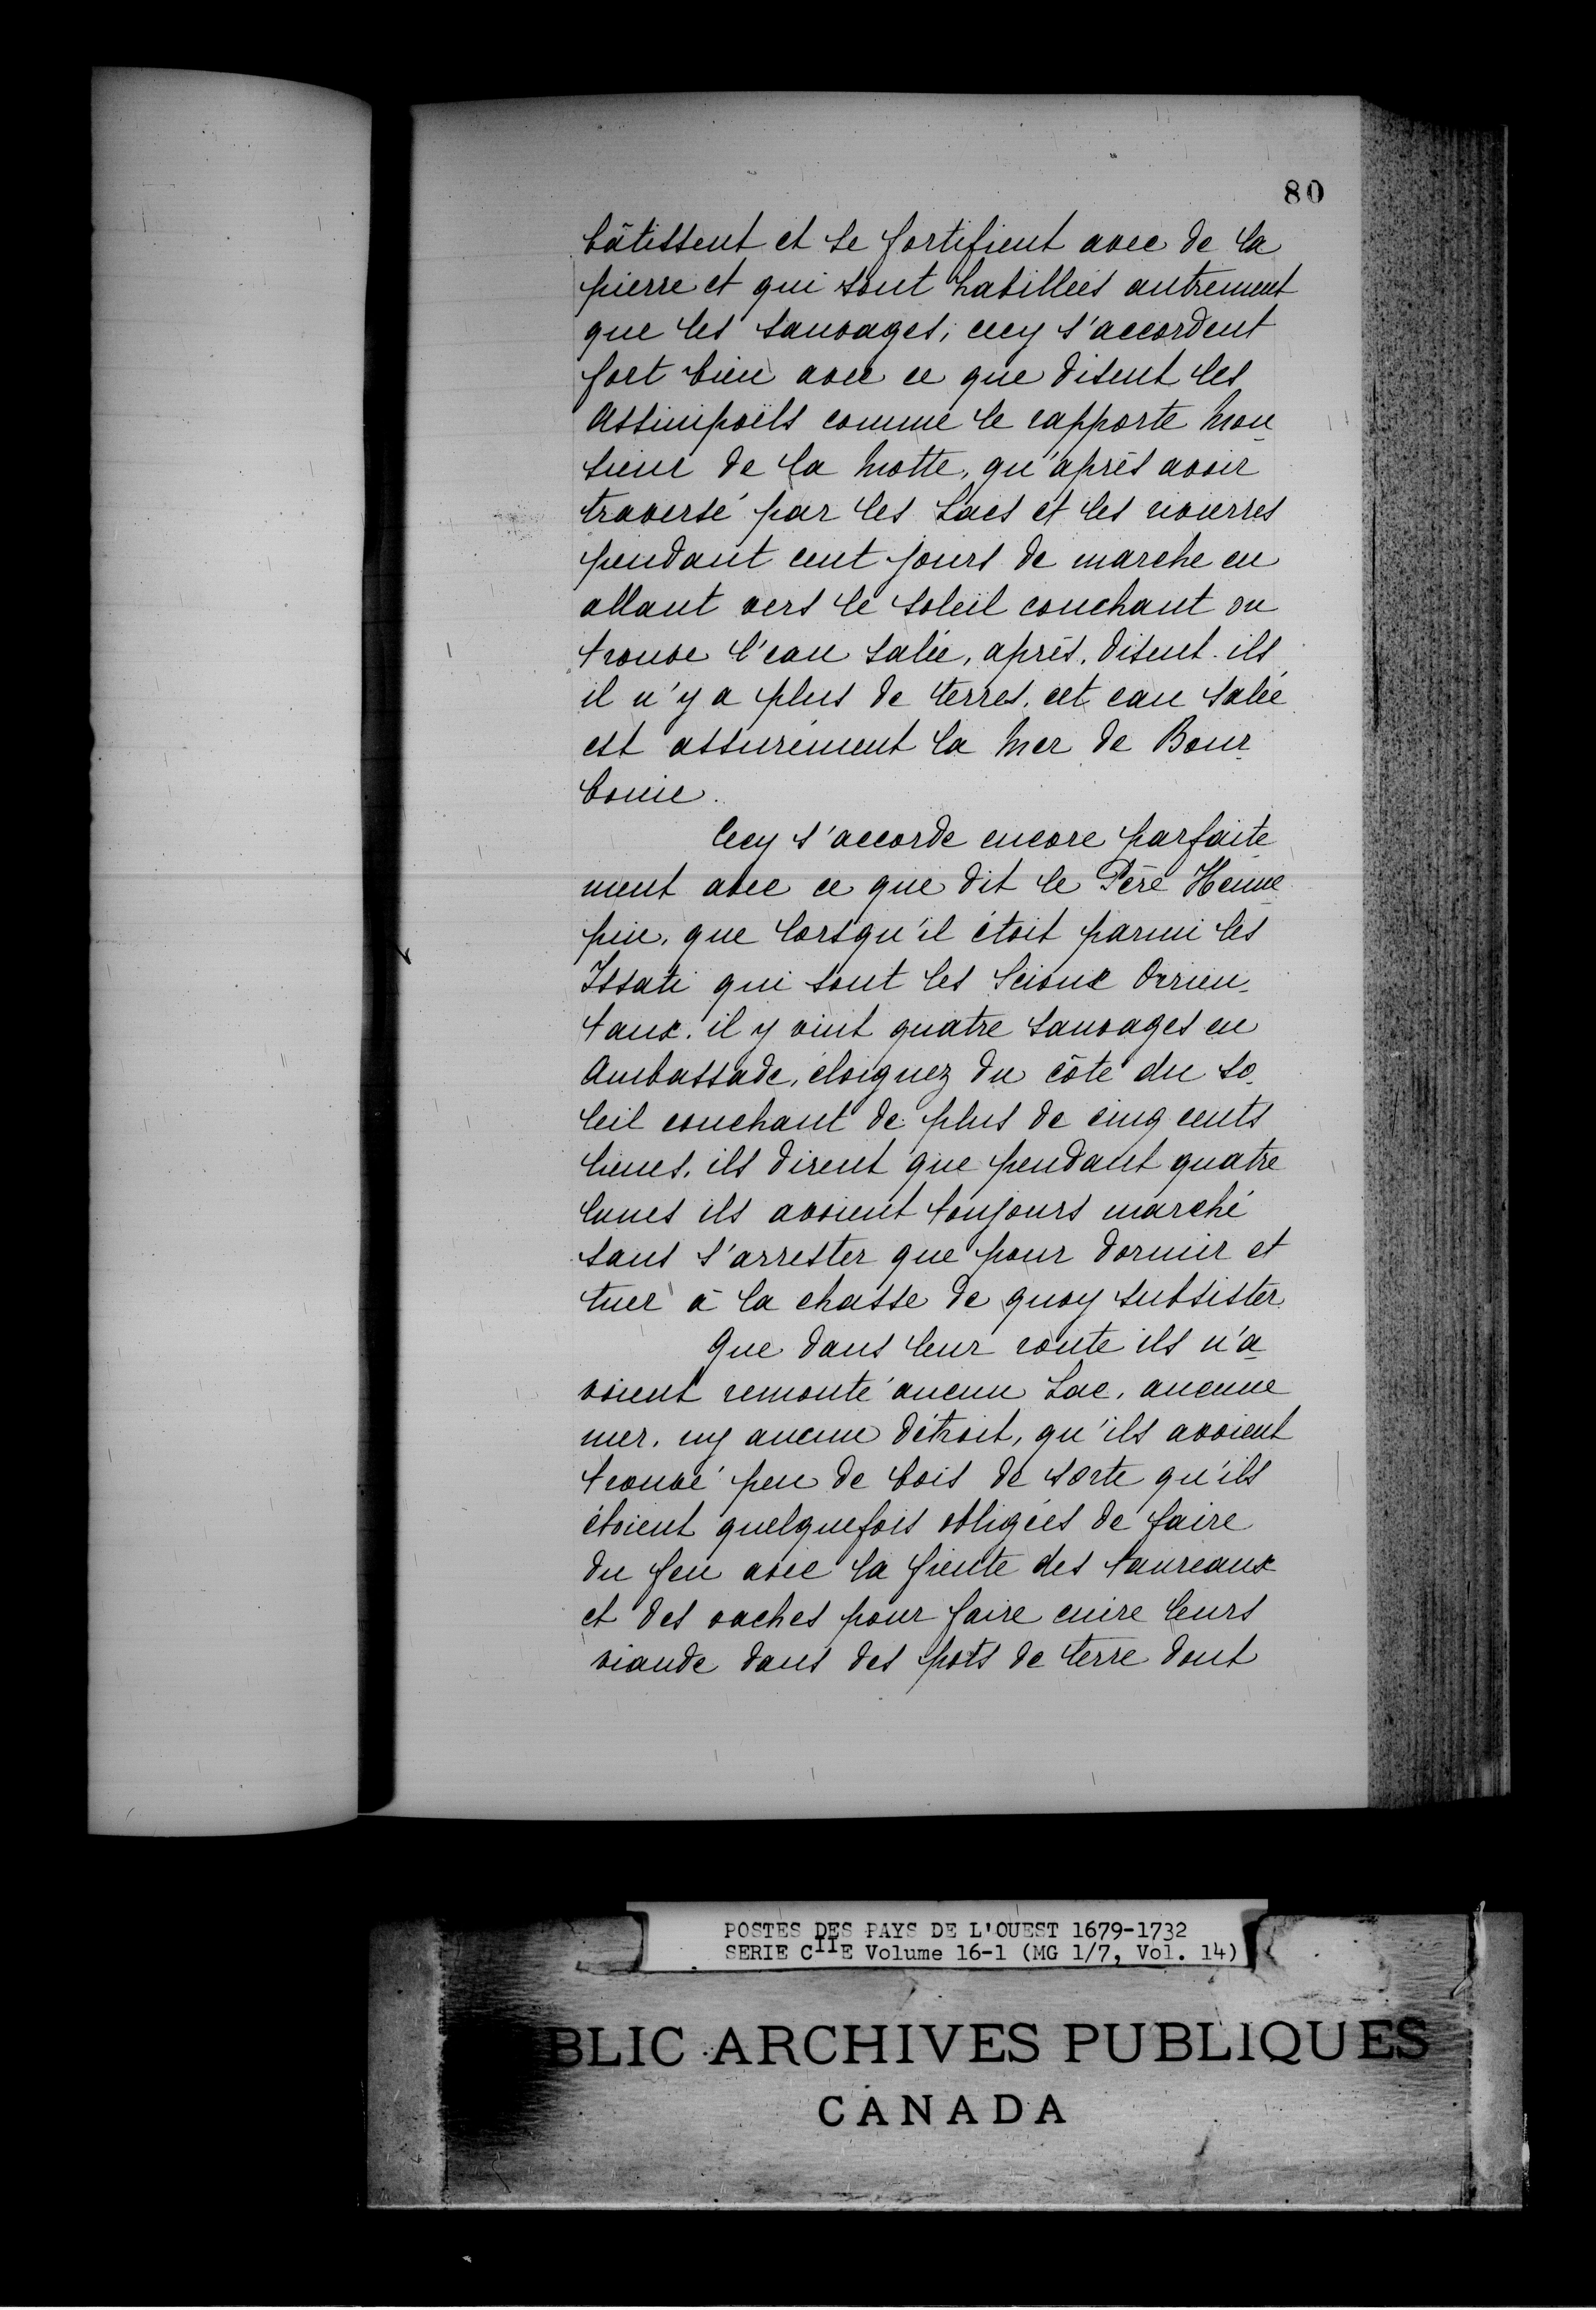 80
bâtissent et se fortifient avec de la
pierre et qui sont habillées autrement
que les sauvages; cecy s'accordent
fort bien avec ce que disent les
Assinipoëls comme le rapporte Mon
sieur de la Motte, qu'après avoir
traversé par les Lacs et les rivierres
pendant cent jours de marche en
allant vers le soleil couchant on
trouve l'eau salée, après, disent-ils
il n'y a plus de terres, cet eau salée
est assurément la Mer de Bour-
bonie.
Cecy s'accorde encore parfaite
ment avec ce que dit le Père Henne
pin, que lorsqu'il étoit parmi les
Issati qui sont les Scioux Orrien-
taux, il y vint quatre sauvages en
Ambassade, éloignez du côté du so-
leil couchant de plus de cinq cents
lieues, ils dirent que pendant quatre
lunes ils avoient toujours marché
sans s'arrester que pour dormir et
tuer à la chasse de quoy subsister
Que dans leur route ils n'a
voient remonté aucun Lac, aucune
mer, ny aucun détroit, qu'ils avoient
trouvé peu de bois de sorte qu'ils
étoient quelquefois obligées de faire
du feu avec la fiente des taureaux
et des vaches pour faire cuire leurs
viande dans des pots de terre dont
POSTES DES PAYS DE L'OUEST 1679-1732
SERIE CIIE Volume 16-1 (MG 1/7, Vol. 14)
BLIC ARCHIVES PUBLIQUES
CANADA